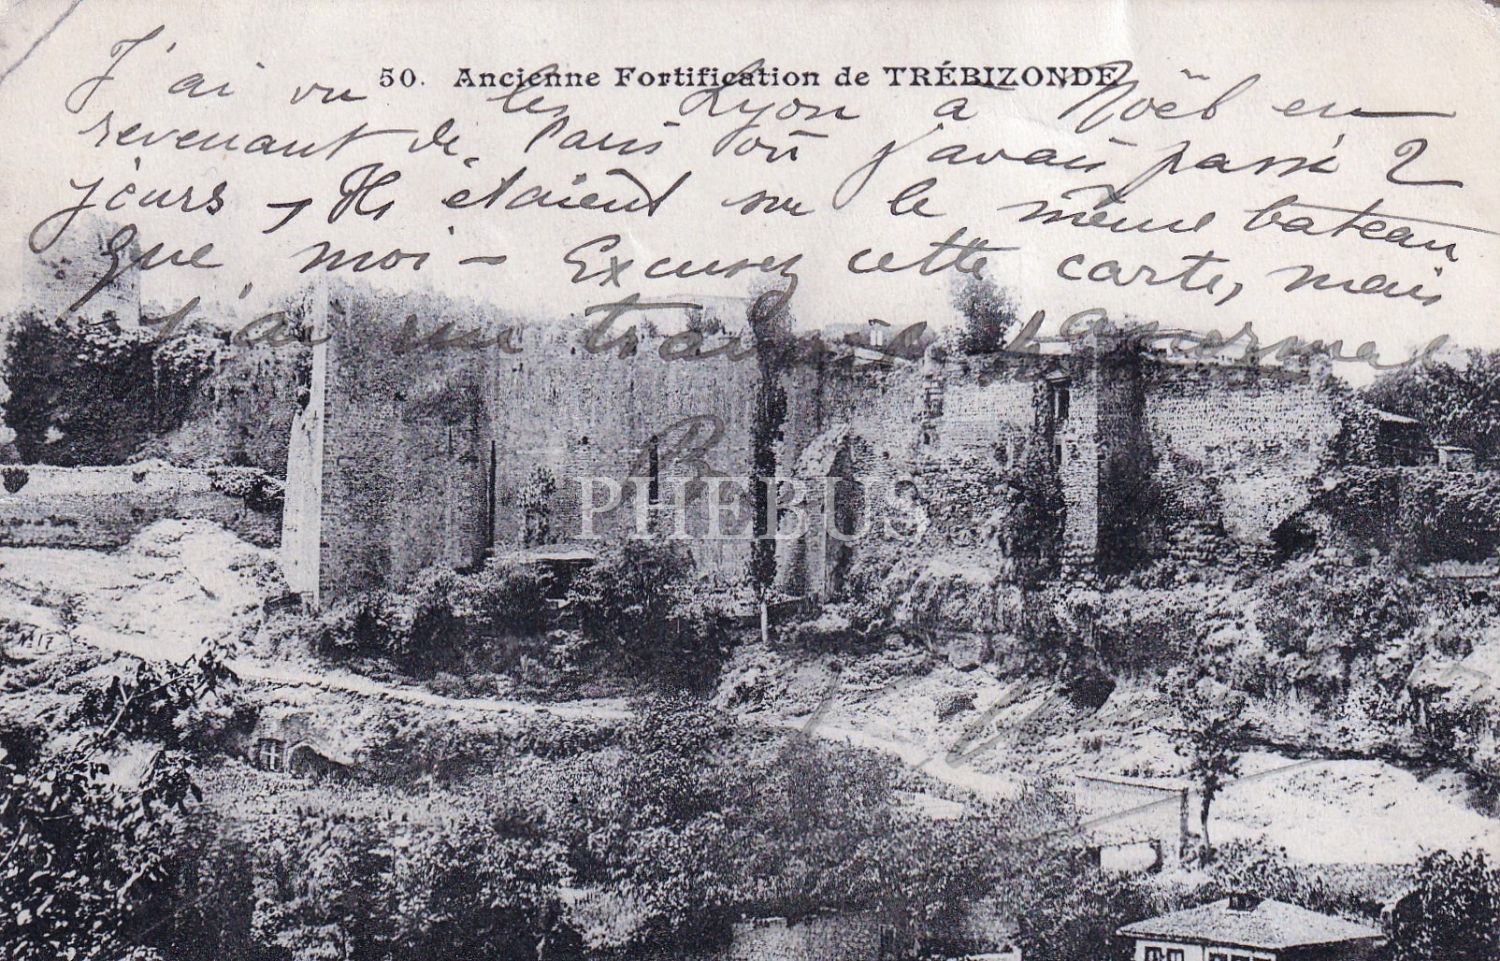 50. Ancienne Fortification de TRÉBIZONDE
J'ai vu les Lyon à Noël en
revenant de Paris où j'avais passé 2
jours - Ils étaient sur le même bateau
que moi - Excusez cette carte, mais
j'ai un travail anormal
PHEBUS
M17